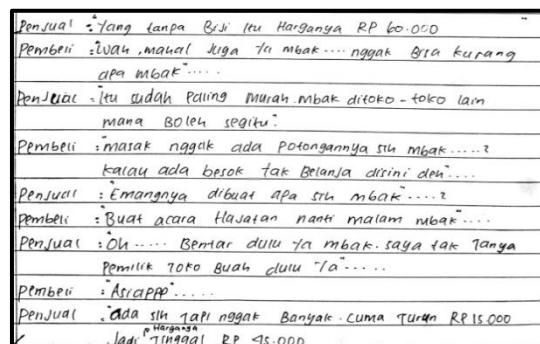 Penjual : "Yang tanpa Biji itu Harganya RP 60.000
Pembeli : "Wah, mahal Juga ya mbak.... nggak Bisa kurang
apa mbak".....
Penjual : "Itu sudah Paling murah mbak ditoko-toko lain
mana Boleh segitu".
Pembeli : "masak nggak ada potongannya sih mbak.....?
kalau ada besok tak Belanja disini deh"....
Penjual : "Emangnya dibuat apa sih mbak"....?
Pembeli : "Buat acara Hajatan nanti malam mbak"....
Penjual : "Oh..... Bentar dulu ya mbak. saya tak Tanya
Pemilik Toko Buah dulu Ya".....
Pembeli : "Asiappp".....
Penjual : "ada sih Tapi nggak Banyak. Cuma Turun RP 15.000
Jadi Harganya Tinggal RP 45.000